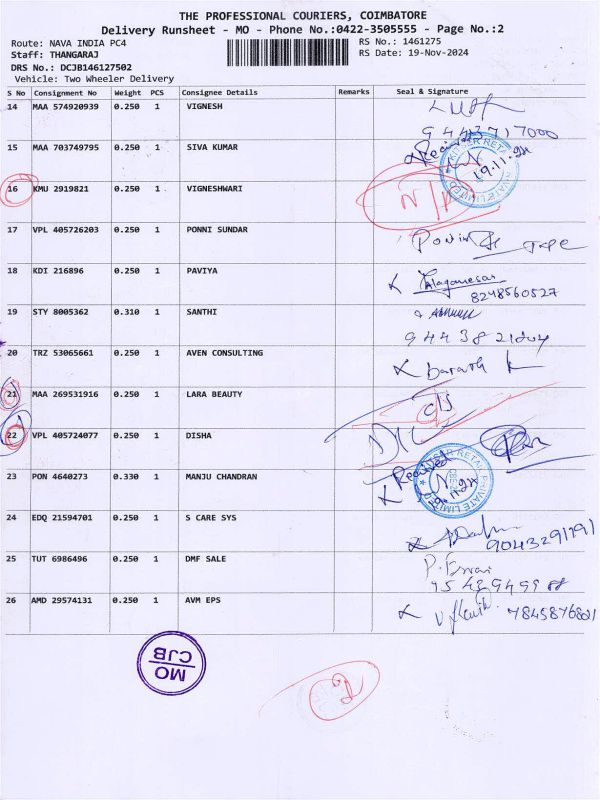 THE PROFESSIONAL COURIERS, COIMBATORE
Delivery Runsheet - MO - Phone No.:0422-3505555 - Page No.:2
Route: NAVA INDIA PC4 RS No.: 1461275
Staff: THANGARAJ RS Date: 19-Nov-2024
DRS No.: DCJB146127502
Vehicle: Two Wheeler Delivery
S No Consignment No Weight PCS Consignee Details Remarks Seal & Signature
14 MAA 574920939 0.250 1 VIGNESH
9443717000
15 MAA 703749795 0.250 1 SIVA KUMAR Received
19.11.24
16 KMU 2919821 0.250 1 VIGNESHWARI N/A
17 VPL 405726203 0.250 1 PONNI SUNDAR
18 KDI 216896 0.250 1 PAVIYA
8248560527
19 STY 8005362 0.310 1 SANTHI
20 TRZ 53065661 0.250 1 AVEN CONSULTING barath k
21 MAA 269531916 0.250 1 LARA BEAUTY
22 VPL 405724077 0.250 1 DISHA
23 PON 4640273 0.330 1 MANJU CHANDRAN Received
24 EDQ 21594701 0.250 1 S CARE SYS
9043291791
25 TUT 6986496 0.250 1 DMF SALE
26 AMD 29574131 0.250 1 AVM EPS
MO
CJB